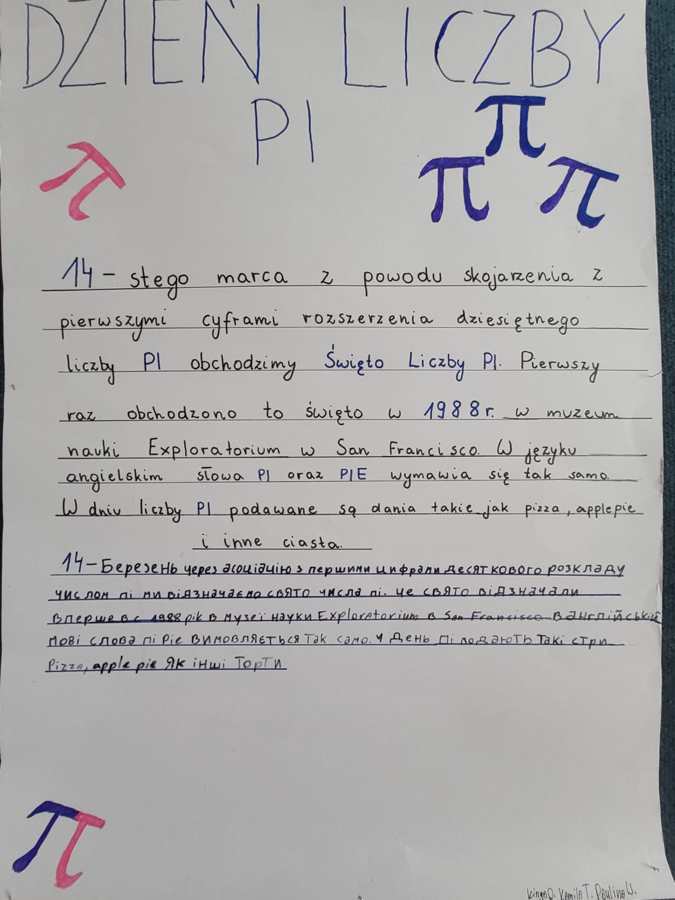 DZIEŃ LICZBY
PI
π
π
π π
14 - stego marca z powodu skojarzenia z
pierwszymi cyframi rozszerzenia dziesiętnego
liczby PI obchodzimy Święto Liczby PI. Pierwszy
raz obchodzono to święto w 1988r. w muzeum
nauki Exploratorium w San Francisco. W języku
angielskim słowa PI oraz PIE wymawia się tak samo.
W dniu liczby PI podawane są dania takie jak pizza, applepie
i inne ciasta.
14 - Березень через асоціацію з першими цифрами десяткового розкладу
числом пі ми відзначаємо свято числа пі. це свято відзначали
вперше в с 1988 рік в музеї науки Exploratorium в San Francisco в англійській
мові слова пі Pie вимовляється так само. У день пі подають такі стри
Pizza, apple pie як інші торти
π
Kinga D. Kamila T. Paulina W.